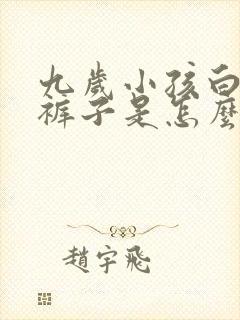 九歲小孩白
褲子是怎麼
趙宇飛